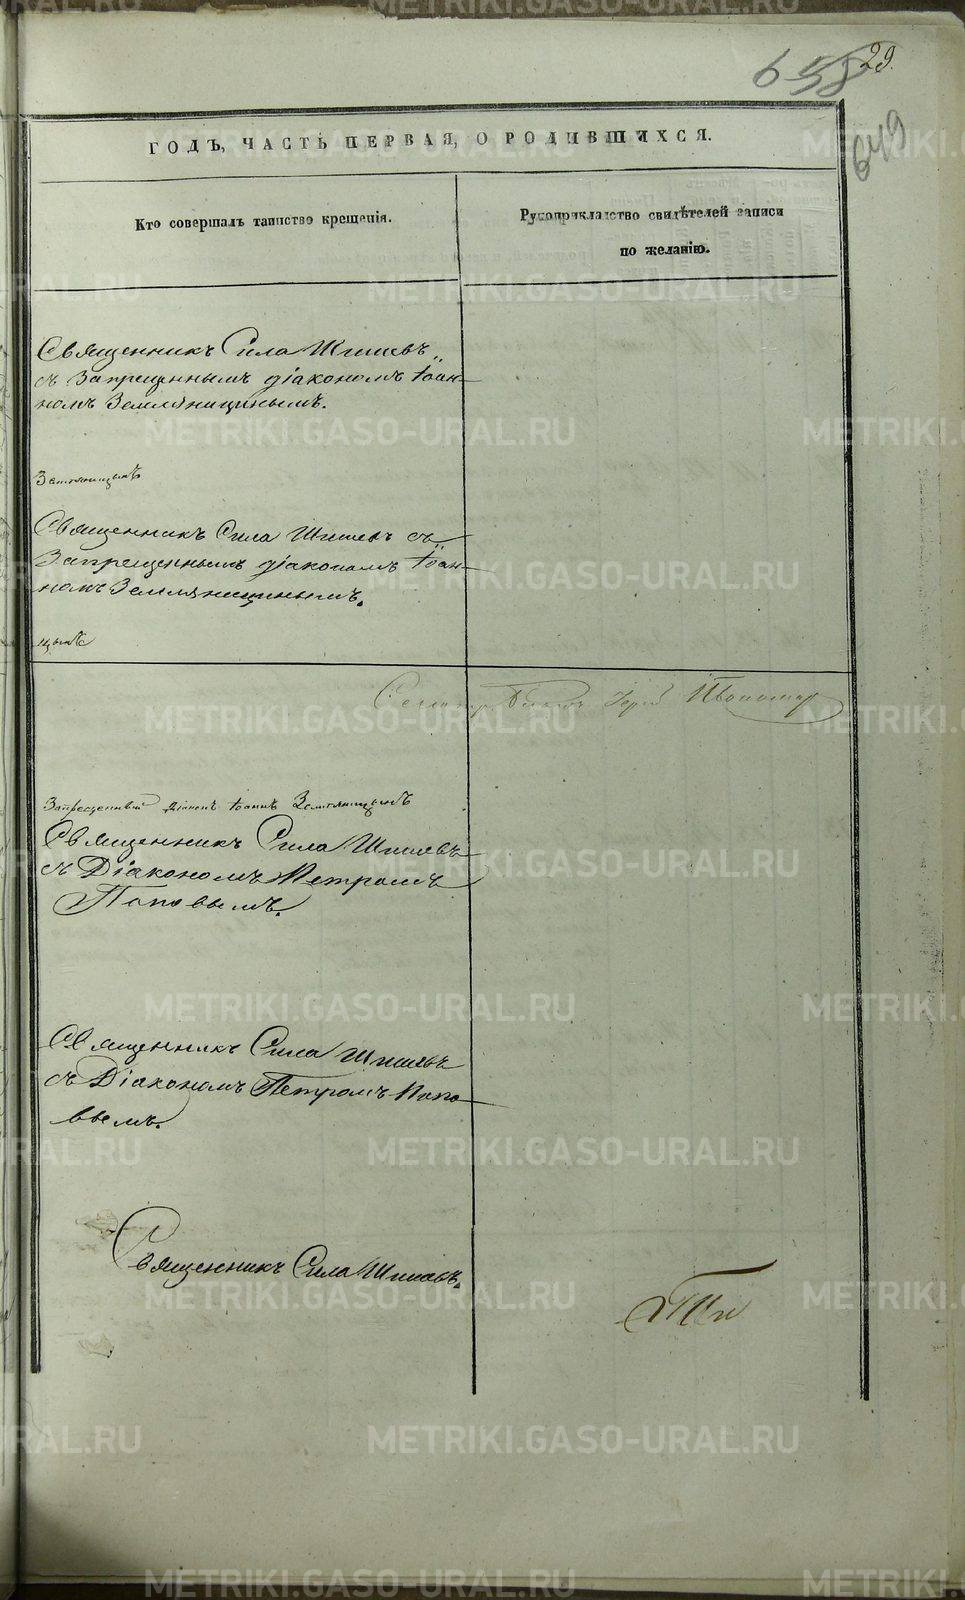 29.
658
649
ГОДЪ, ЧАСТЬ ПЕРВАЯ, О РОДИВШИХСЯ.
Кто совершалъ таинство крещенія.
Рукоприкладство свидѣтелей записи
по желанію.
Священникъ Сила Шишевъ
съ Запрещеннымъ діакономъ Іоан-
номъ Земляницинымъ.
Земляницынъ
Священникъ Сила Шишевъ съ
Запрещеннымъ діакономъ Іоан-
номъ Земляницинымъ.
цынъ
Запрещенный Діаконъ Іоаннъ Земляницынъ
Священникъ Сила Шишевъ
съ Діакономъ Петромъ
Поповымъ.
Священникъ Сила Шишевъ
съ Діакономъ Петромъ Попо-
вымъ.
Священникъ Сила Шишевъ.
METRIKI.GASO-URAL.RU